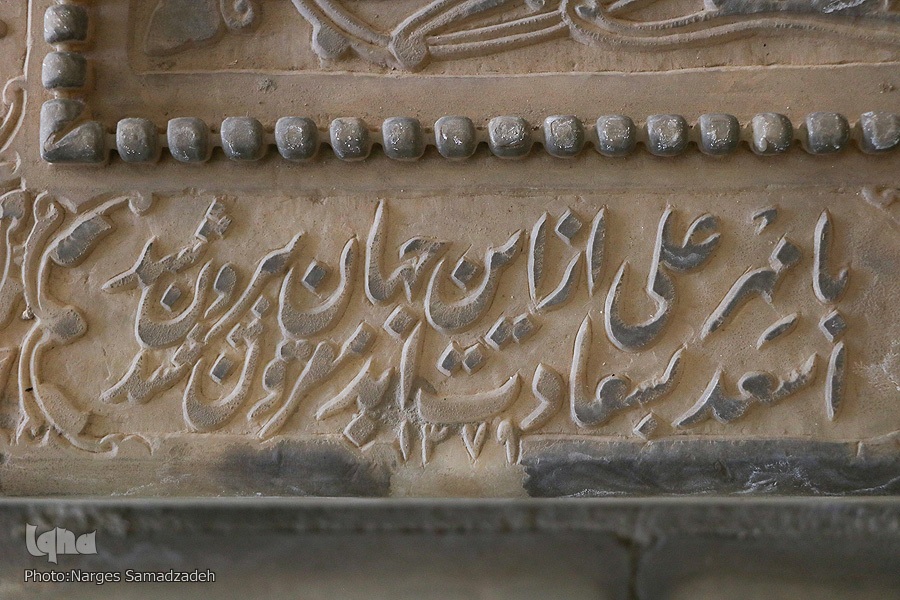 با مهر علی از این جهان بیرون شد
اسعد بسعادت ابد مقرون شد
۱۳۷۹
iqna
Photo:Narges Samadzadeh